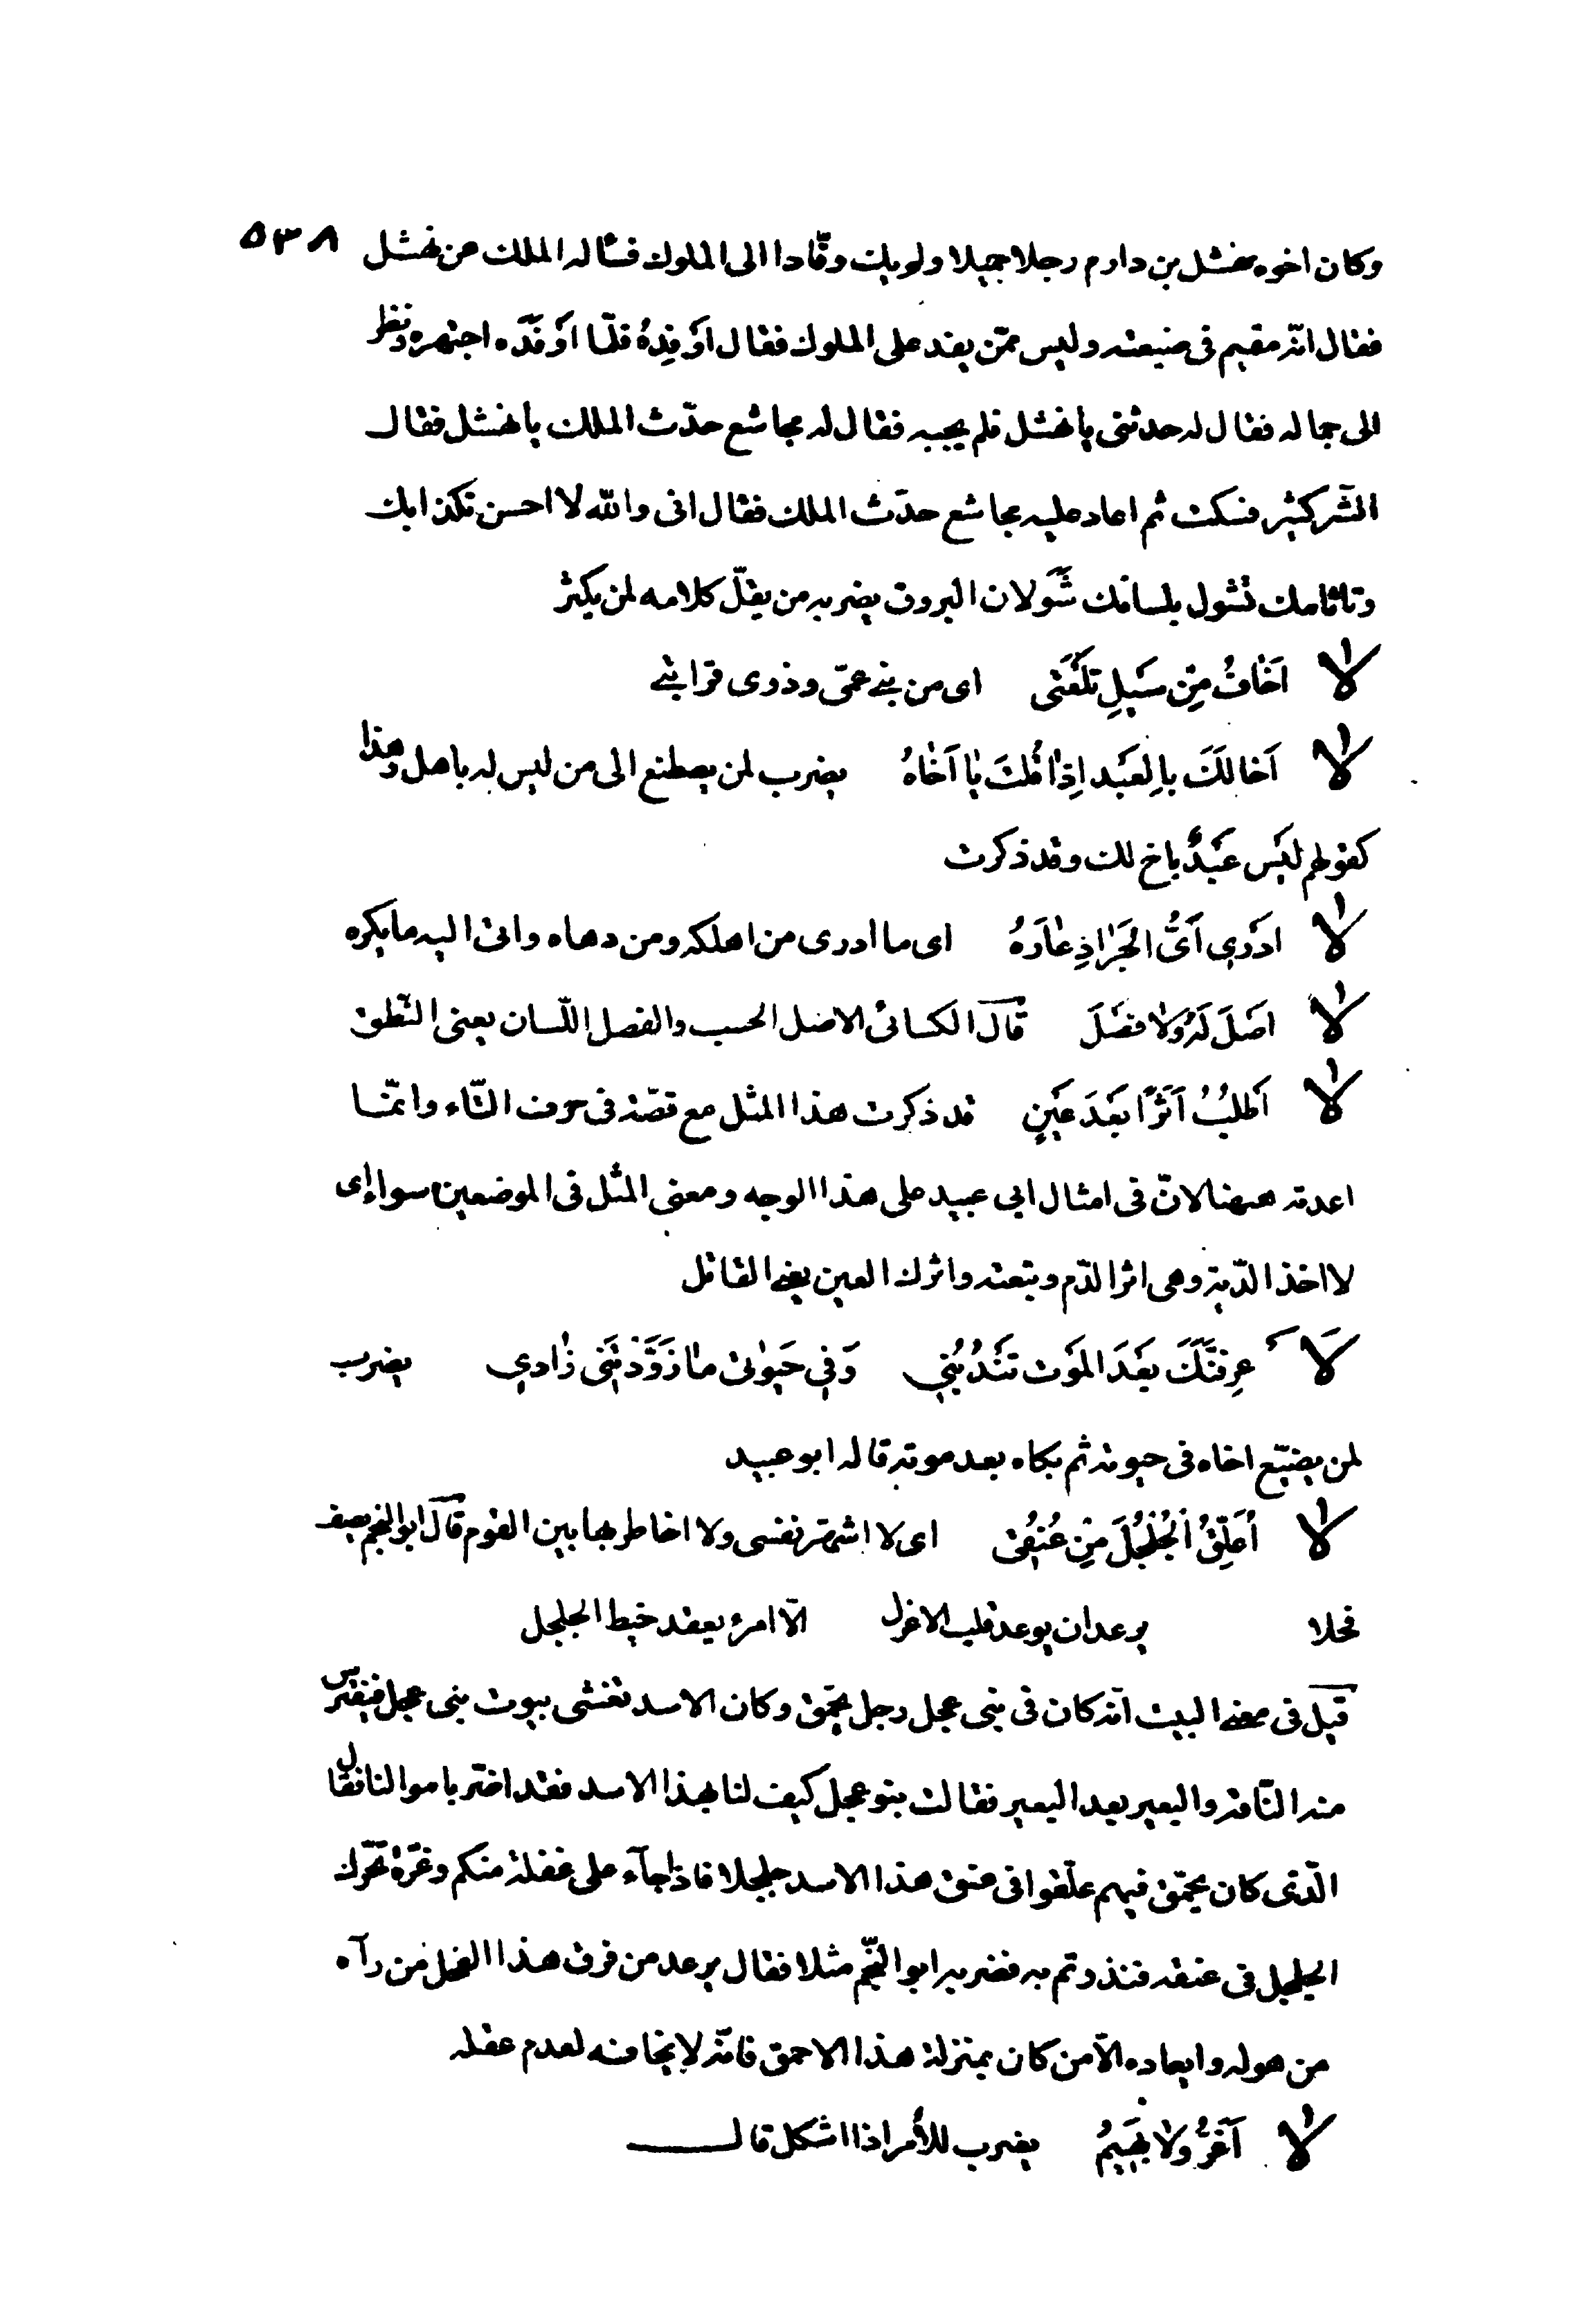 ٥٣٨
وكان اخوه نهشل بن دارم رجلا جميلا ولم يك وفّادا الى الملوك فسأله الملك عن نهشل
فقال انّه مقيم فى ضيعته وليس ممّن يفد على الملوك فقال اَوْفِدْهُ فلمّا اَوْفَدَه اجتهره ونظر
الى جماله فقال له حدثنى يا نهشل فلم يجبه فقال له مجاشع حدّث الملك يا نهشل فقال
الشّر كثير فسكت ثم اعاد عليه مجاشع حدّث الملك فقال انى والله لا احسن تكذابك
وتاثامك تشول بلسانك شَوَلان البروق يضرب من يقلّ كلامه لمن يكثر
لا اَخَافُ مِنْ سَيْلِ تَلْعَتى اى من بنى عمّى وذوى قرابتى
لا اَخا لَكَ بِالعَبْد اِذا قُلْتَ يا اَخَاهُ يضرب لمن يصطنع الى من ليس له باهل وهذا
كقولهم لَيْس عَبْدٌ باخ لك وقد ذكرت
لا ادْرِي اَىُّ الجَرَادِ عَارَهُ اى ما ادرى من اهلكه ومن دهاه واتى اليه ما يكره
لا اصْلَ لَهُ وَلا فَصْلَ قال الكسائى الاصل الحسب والفصل اللّسان يعنى النّطق
لا اَطْلُبُ اَثَرًا بَعْدَ عَيْنٍ قد ذكرت هذا المثل مع قصّته فى حرف التّاء وانّما
اعدته ههنا لانّ فى امثال ابي عبيد على هذا الوجه ومعنى المثل فى الموضعين سواء اى
لا اخذ الدّية وهى اثر الدّم وتبعته واترك العين يعنى القاتل
لَا عرِفَنَّكَ بَعْدَ المَوْت تَنْدُبُنِي وَفي حَيوتى ما زَوَّدْتَنِى زادي يضرب
لمن يضيّع اخاه فى حيوته ثم بكاه بعد موته قاله ابو عبيد
لا اُعَلِّقُ الْجُلْجُلَ مِنْ عُنُقِى اى لا اشهّر نفسى ولا اخاطر بها بين القوم قال ابو النجم يصف
فحلا يرعد ان يوعد قلب الاعزل الّا امرء يعقد خيط الجلجل
قيل فى معنى البيت انّه كان فى بنى عجل رجل يحمّق وكان الاسد تغشى بيوت بنى عجل فيفترس
منه النّاقة والبعير بعد البعير فقالت بنو عجل كيف لنا بهذا الاسد فقد اضرّ باموالنا فقال
الّذى كان يحمّق فيهم علّقوا فى عنق هذا الاسد جلجلا فاذا جآء على غفلة منكم وغرّة تحرّك
الجلجل فى عنقه فنذرتم به فضربه ابو النّجم مثلا فقال يرعد من فرق هذا الفحل من رآه
من هوله وابعاده الّا من كان بمنزلة هذا الاحمق فانّه لا يخافه لعدم عقله
لا اَغَرُّ وَلا بَهِيمُ يضرب للأمر اذا اشكل قال